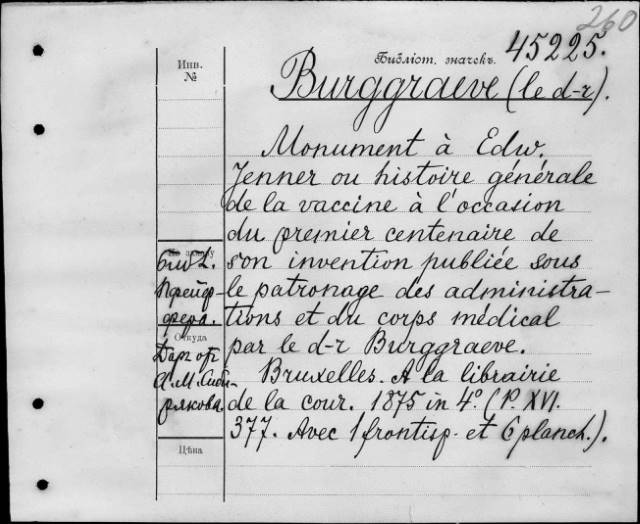 260
Библіот. значекъ 45225.
Инв.
№
Burggraeve (le d-r).
Monument à Edw.
Jenner ou histoire générale
de la vaccine à l'occasion
du premier centenaire de
son invention publiée sous
le patronage des administra-
tions et du corps médical
par le d-r Burggraeve.
Bruxelles. A la librairie
de la cour. 1875 in 4º (P. XVI.
377. Avec 1 frontisp. et 6 planch.).
Пфейф-
фера.
Откуда
Дар от
А. М. Сиби-
рякова.
Цѣна